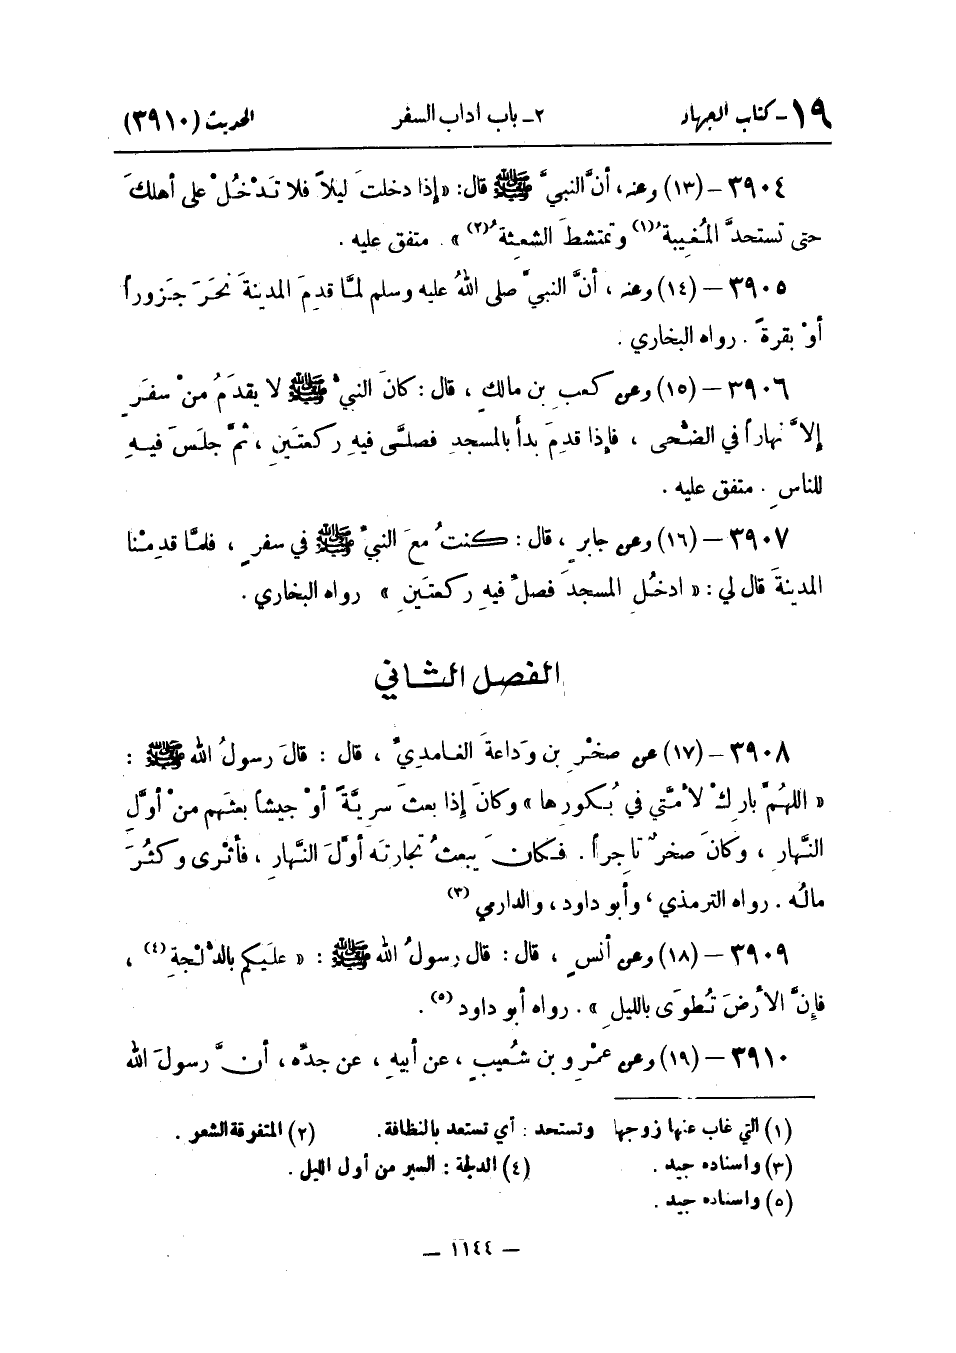 ١٩- كتاب الجهاد ٢- باب آداب السفر الحديث (٣٩١٠)
٣٩٠٤ - (١٣) وعنه، أنَّ النبيَّ ﷺ قال: «إذا دخلتَ ليلاً فلا تَدْخُلْ على أهلكَ
حتى تستحدَّ المُغِيبةُ(١) وتمتشطَ الشعِثةُ(٢)». متفق عليه.
٣٩٠٥ - (١٤) وعنه، أنَّ النبيَّ صلى اللهُ عليه وسلم لمَّا قدِمَ المدينةَ نحَرَ جَزوراً
أوْ بقرةً. رواه البخاري.
٣٩٠٦ - (١٥) وعن كعبِ بن مالكٍ، قال: كانَ النبيُّ ﷺ لا يقدَمُ منْ سفَرٍ
إلاَّ نهاراً في الضُّحى، فإذا قدِمَ بدأ بالمسجدِ فصلَّى فيهِ ركعتَينِ، ثمَّ جلَسَ فيهِ
للناسِ. متفق عليه.
٣٩٠٧ - (١٦) وعن جابرٍ، قال: كنتُ معَ النبيِّ ﷺ في سفرٍ، فلمَّا قدِمْنا
المدينةَ قال لي: «ادخُلِ المسجدَ فصلِّ فيهِ ركعتَينِ» رواه البخاري.
الفصل الثاني
٣٩٠٨ - (١٧) عن صخْرِ بن وَداعةَ الغامدِيِّ، قال: قالَ رسولُ الله ﷺ:
«اللهُمَّ بارِكْ لأمَّتي في بُكورِها» وكانَ إذا بعثَ سريَّةً أوْ جيشاً بعثَهم منْ أوَّلِ
النَّهارِ، وكانَ صخرٌ تاجِراً. فكانَ يبعثُ تجارتَه أوَّلَ النَّهارِ، فأثْرى وكثُرَ
مالُه. رواه الترمذي، وأبو داود، والدارمي(٣)
٣٩٠٩ - (١٨) وعن أنسٍ، قال: قال رسولُ الله ﷺ: «علَيكم بالدُّلْجةِ(٤)،
فإنَّ الأرضَ تُطوَى بالليلِ». رواه أبو داود(٥).
٣٩١٠ - (١٩) وعن عمْرِو بن شُعيبٍ، عن أبيهِ، عن جدِّه، أنَّ رسولَ الله
(١) التي غاب عنها زوجها وتستحد: أي تستعد بالنظافة. (٢) المتفرقة الشعر.
(٣) واسناده جيد. (٤) الدلجة: السير من أول الليل.
(٥) واسناده جيد.
— ١١٤٤ —